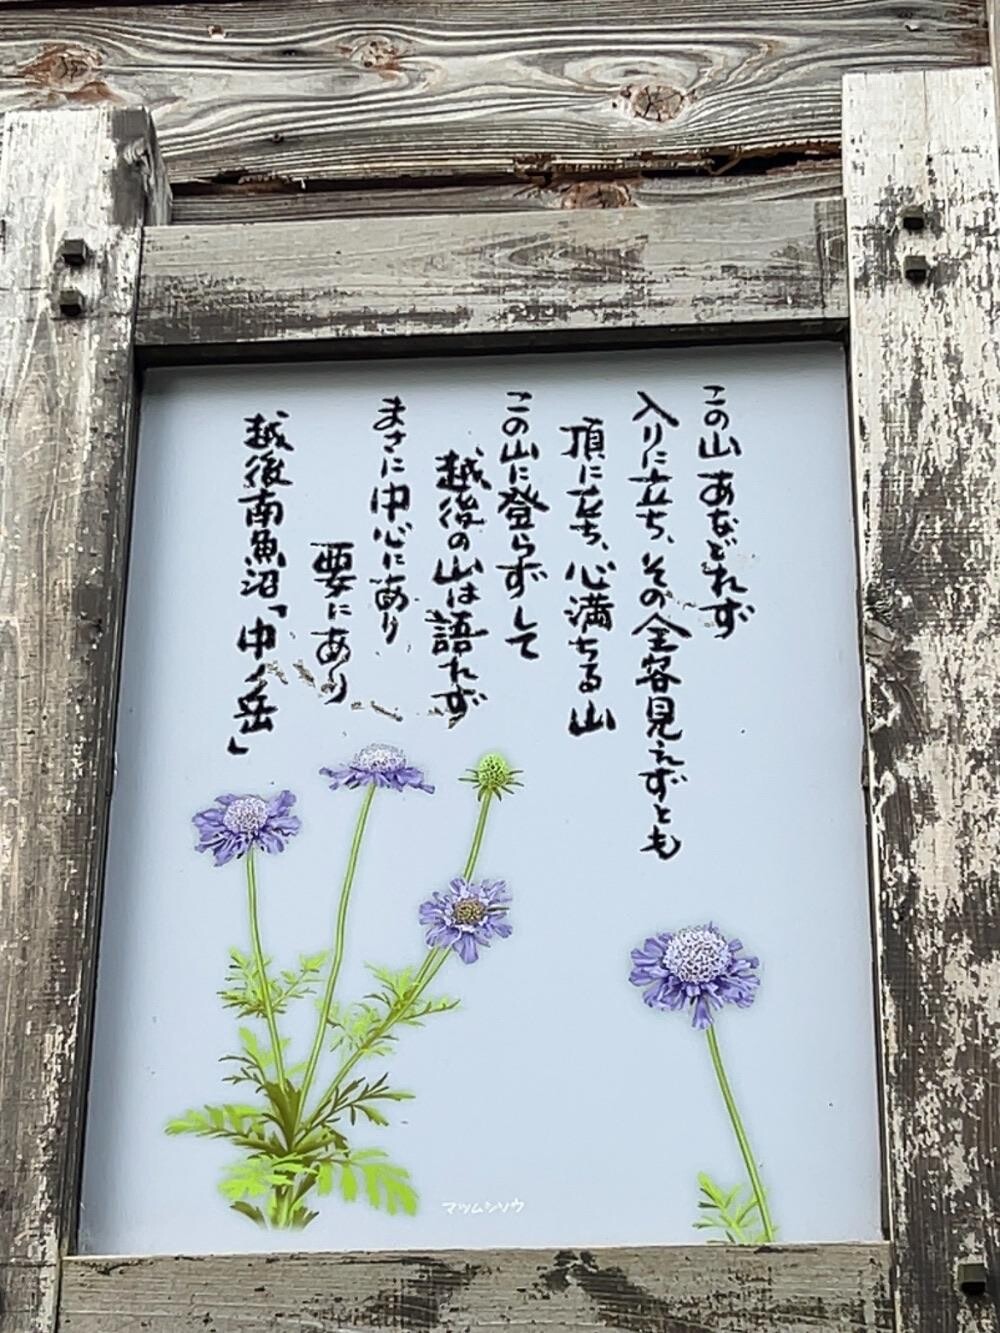 この山 あなどれず
入りに立ち、その全容見えずとも
頂に立ち、心満ちる山
この山に登らずして
越後の山は語れず
まさに中心にあり
要にあり
越後南魚沼「中ノ岳」
マツムシソウ